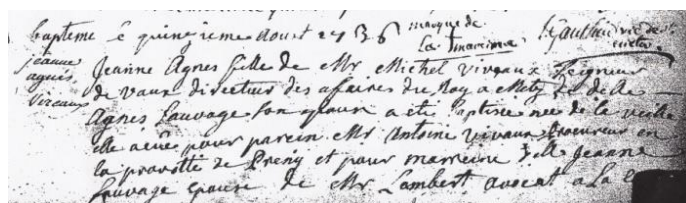 bapteme le quinzieme aoust 1736 marque de La marreine Lgauthier vic de St
jeanne agnes viveaux
Jeanne Agnes fille de Mr Michel Viveaux Seigneur
de vaux directeur des affaires du Roy a Metz et de delle
Agnes Sauvage son epouse a eté baptisée née de la veille
elle a eüe pour parein Mr Antoine Vivaux Procureur en
la provotté de Preny et pour marreine delle Jeanne
Sauvage epouse de Mr Lambert avocat a La